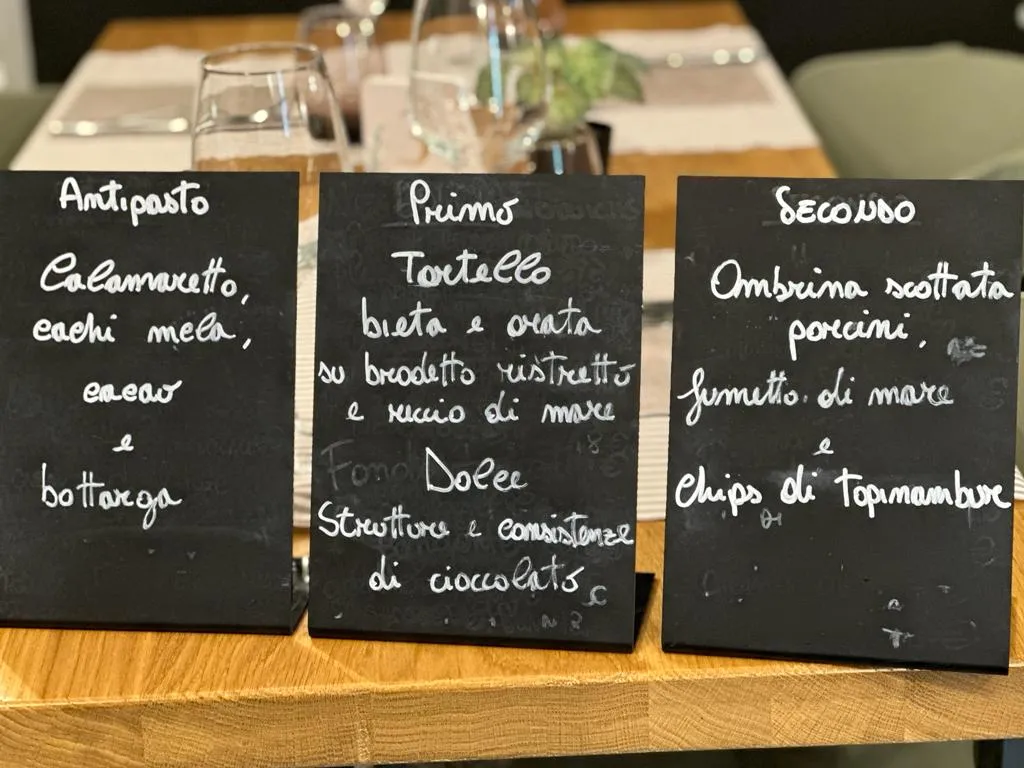 Antipasto
Calamaretto,
cachi mela,
cacao
e
bottarga
Primo
Tortello
bieta e orata
su brodetto ristretto
e riccio di mare
Dolce
Strutture e consistenze
di cioccolato
SECONDO
Ombrina scottata
porcini,
fumetto di mare
e
Chips di Topinambure